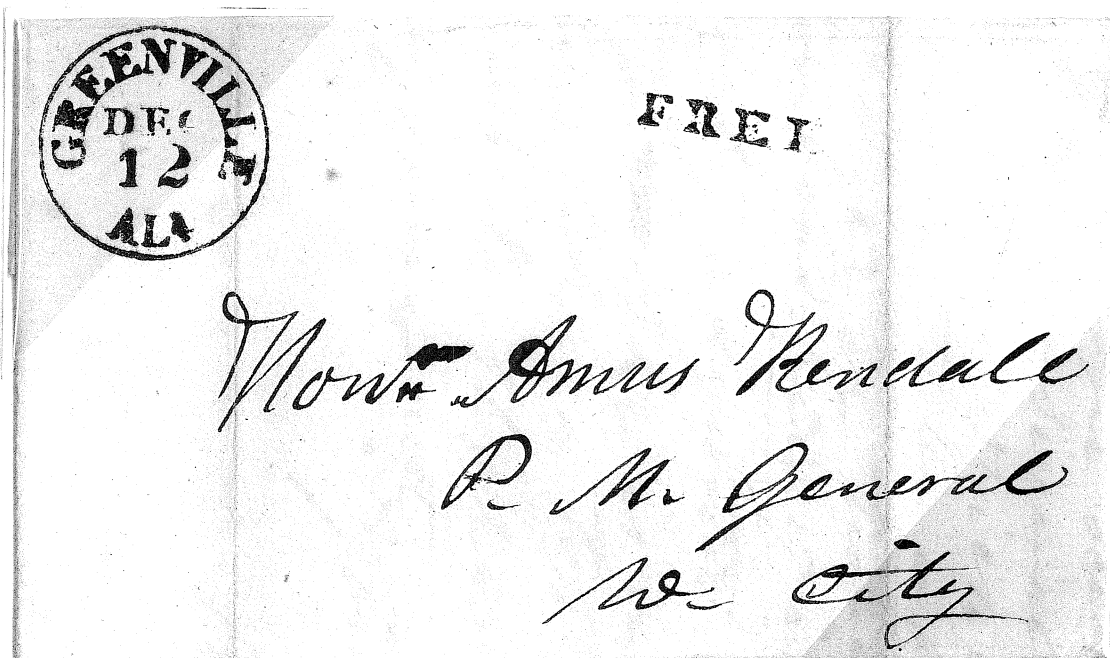 GREENVILLE
DEC
12
ALA
FREE
Hon. Amus Kendall
P. M. General
W. City